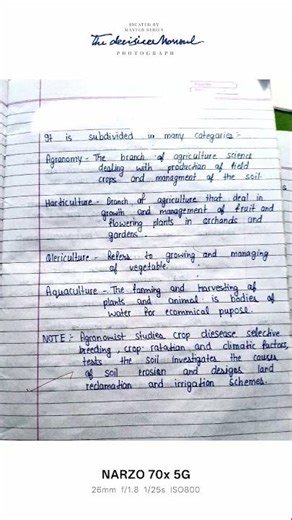 CREATED BY
MASTER SERIES
The decisive Moment
PHOTOGRAPH
It is subdivided in many categories :-
Agronomy - The branch of agriculture science
dealing with production of field
crops and managment of the soil.
Horticulture - Branch of agriculture that deal in
growth and management of fruit and
flowering plants in orchands and
gardens
Olericulture - Refers to growing and managing
of vegetable.
Aquaculture - The farming and harvesting of
plants and animal is bodies of
water for ecommical pupose.
NOTE :- Agronomist studies crop diesease selective
breeding, crop ratation and climatic factors,
tests the soil investigates the causes
of soil erosion and designs land
reclamation and irrigation schemes.
NARZO 70x 5G
26mm f/1.8 1/25s ISO800